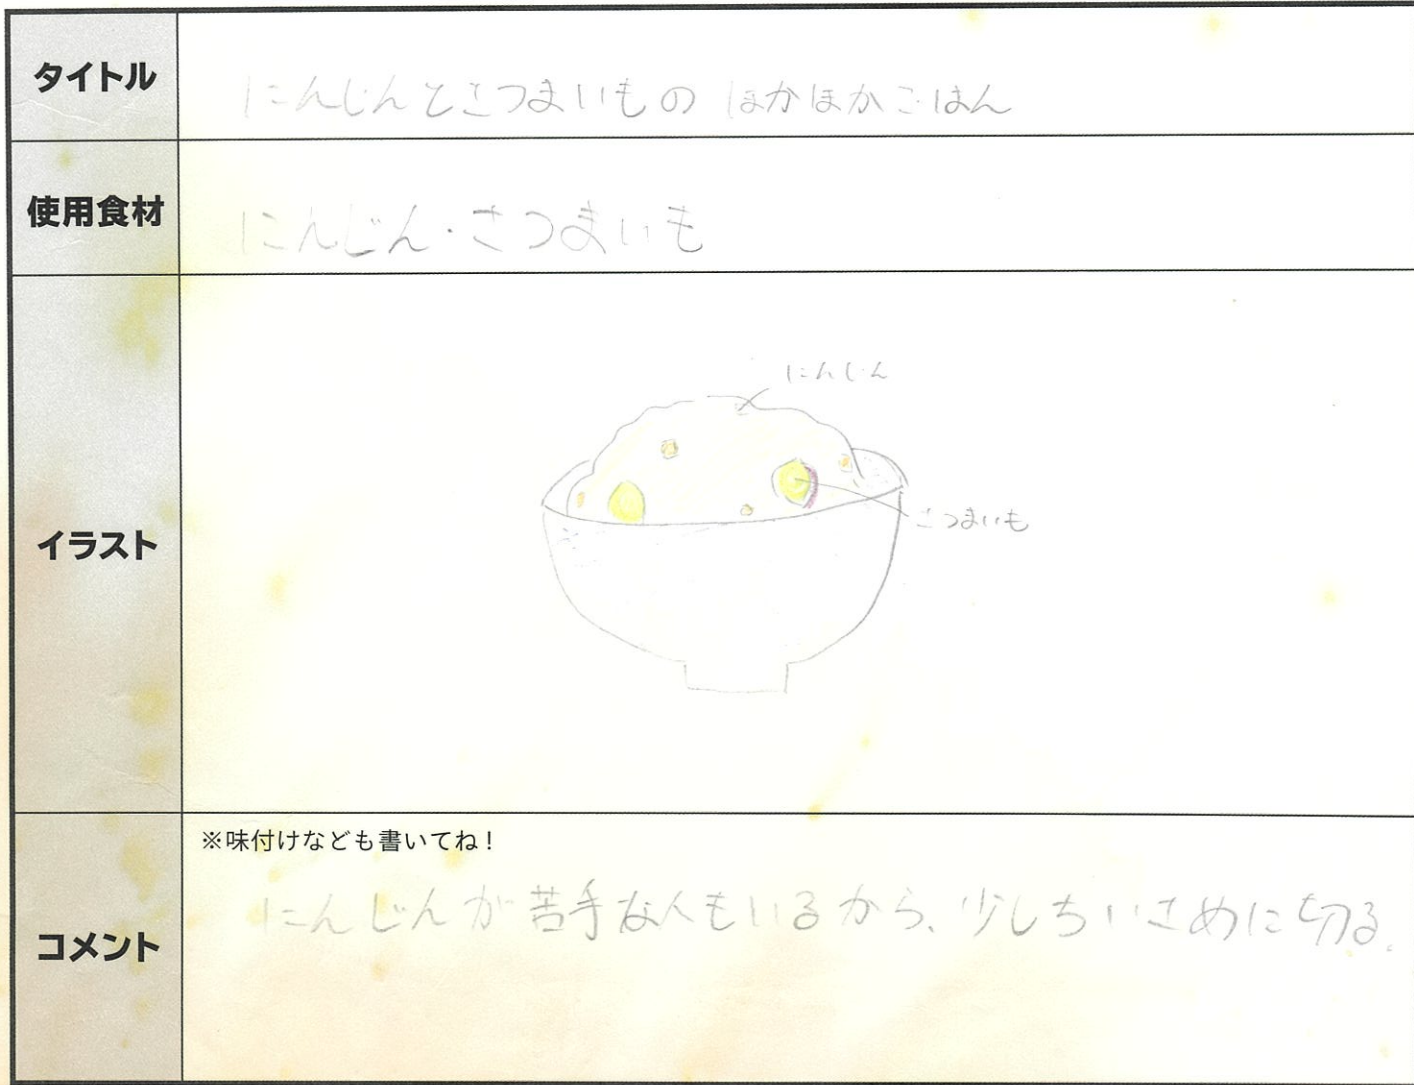 タイトル
にんじんとさつまいもの ほかほかごはん
使用食材
にんじん・さつまいも
イラスト
にんじん
さつまいも
コメント
※味付けなども書いてね!
にんじんが苦手な人もいるから、少しちいさめに切る。